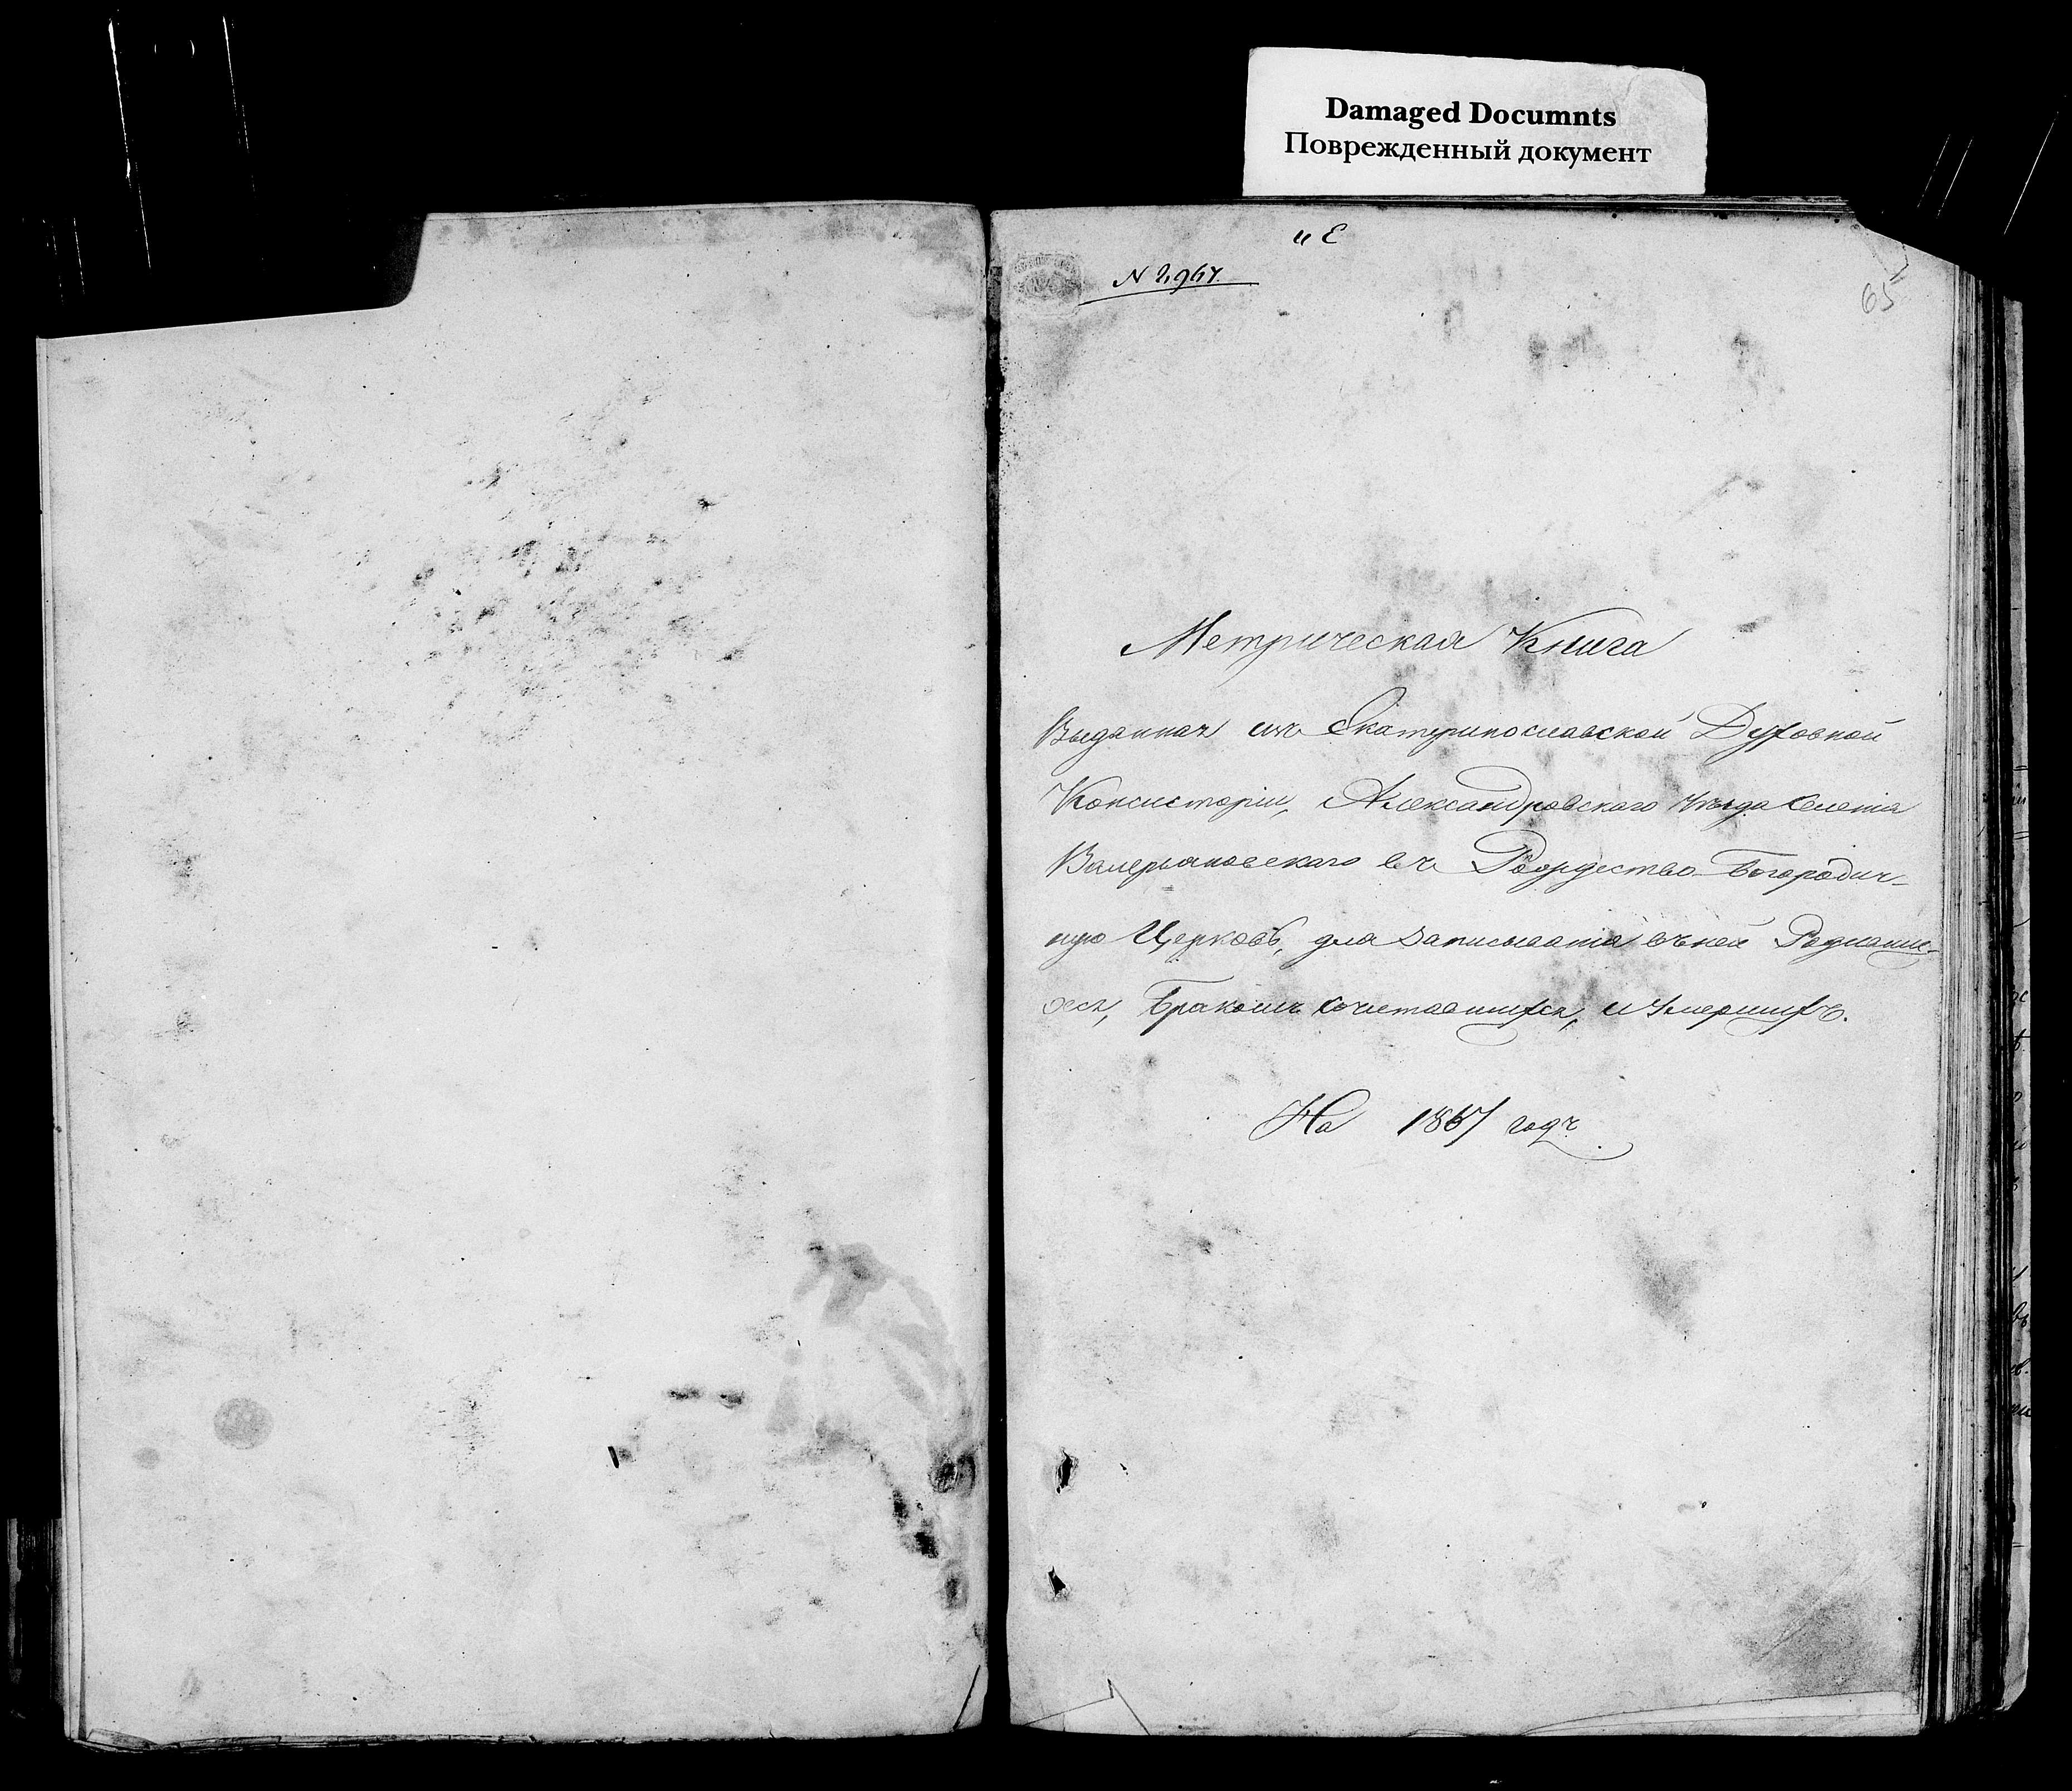 Damaged Documnts
Поврежденный документ
65
Метрическая Книга
Выданная изъ Екатеринославской Духовной
Консисторіи, Александровскаго Уѣзда Селенія
Валерьяновскаго въ Рождество-Богородич-
ную Церковь, для записыванія въ ней Родивши-
хся, Бракомъ Сочетавшихся, и Умершихъ.
На 1867 годъ.